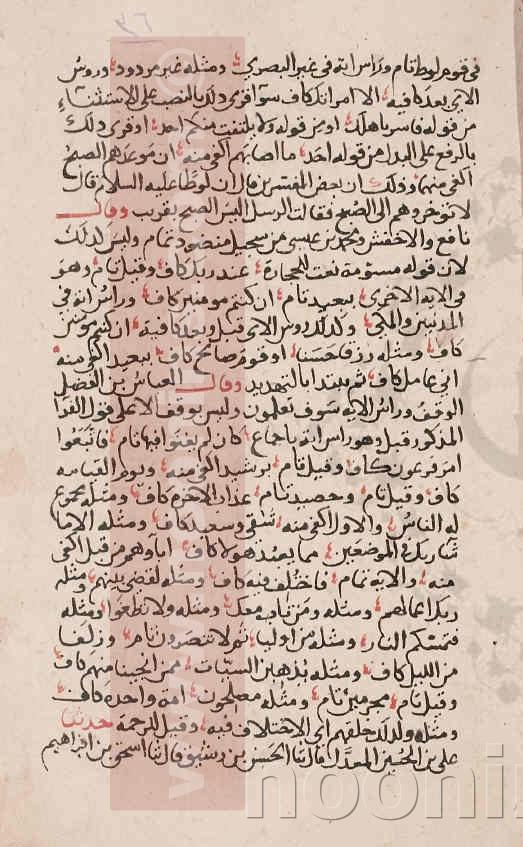 ٣٦
في قوم لوط تام ورأس اية في غير البصري ومثله غير مردود وروس
الاي بعد كافية الا امراتك كاف سوآ قرئ ذلك بالنصب على الاستثنآء
من قوله فاسر باهلك او من قوله ولا يلتفت منكم احد او قرئ ذلك
بالرفع على البدل من قوله احد ما اصابهم اكفى منه ان موعدهم الصبح
اكفى منهما وذلك ان بعض المفسرين قال ان لوطا عليه السلام قال
لا توخروهم الى الصبح فقالت الرسل اليس الصبح بقريب وقال
نافع والاخفش ومحمد بن عيسى من سجيل منضود تمام وليس كذلك
لان قوله مسومة نعت للحجارة عند ربك كاف وقيل تام وهو
في الاية الاخرى ببعيد تام ان كنتم مومنين كاف ورأس اية في
المدنيين والمكي وكذلك روس الاي قبل وبعد كافية ان كنتم مومنين
كاف ومثله رزقا حسنا او قوم صالح كاف ببعيد اكفى منه
اني عامل كاف ثم يبتدا بالتهديد وقال العباس بن الفضل
الوقف وراس الاية سوف تعلمون وليس بوقف الا على قول الفرا
المذكور قبل وهو راس اية باجماع كان لم يغنوا فيها تام فاتبعوا
امر فرعون كاف وقيل تام برشيد اكفى منه ويوم القيامة
كاف وقيل تام وحصيد تام عذاب الاخرة كاف ومثله مجموع
له الناس والاول اكفى منه شقي وسعيد كاف ومثله الا ما
شا ربك في الموضعين مما يعبد هولا كاف اباوهم من قبل اكفى
منه والاية تمام فاختلف فيه كاف ومثله لقضي بينهم ومثله
ربك اعمالهم ومثله ومن تاب معك ومثله ولا تطغوا ومثله
فتمسكم النار ومثله من اوليا ثم لا تنصرون تام وزلفا
من الليل كاف ومثله يذهبن السيات ممن انجينا منهم كاف
وقيل تام مجرمين تام ومثله مصلحون امة واحدة كاف
ومثله ولذلك خلقهم اي الاختلاف فيه وقيل للرحمة حدثنا
علي بن الحسين المعدل قال ثنا الحسن بن رشيق قال ثنا اسحق بن ابراهيم
noonin